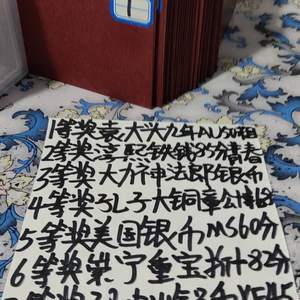 1
1等奖袁大头九年AU50
2等奖淳熙铁钱85分背春
3等奖大力神法郎银币
4等奖孔子大铜章
5等奖美国银币MS60分
6等奖崇宁重宝折十82分